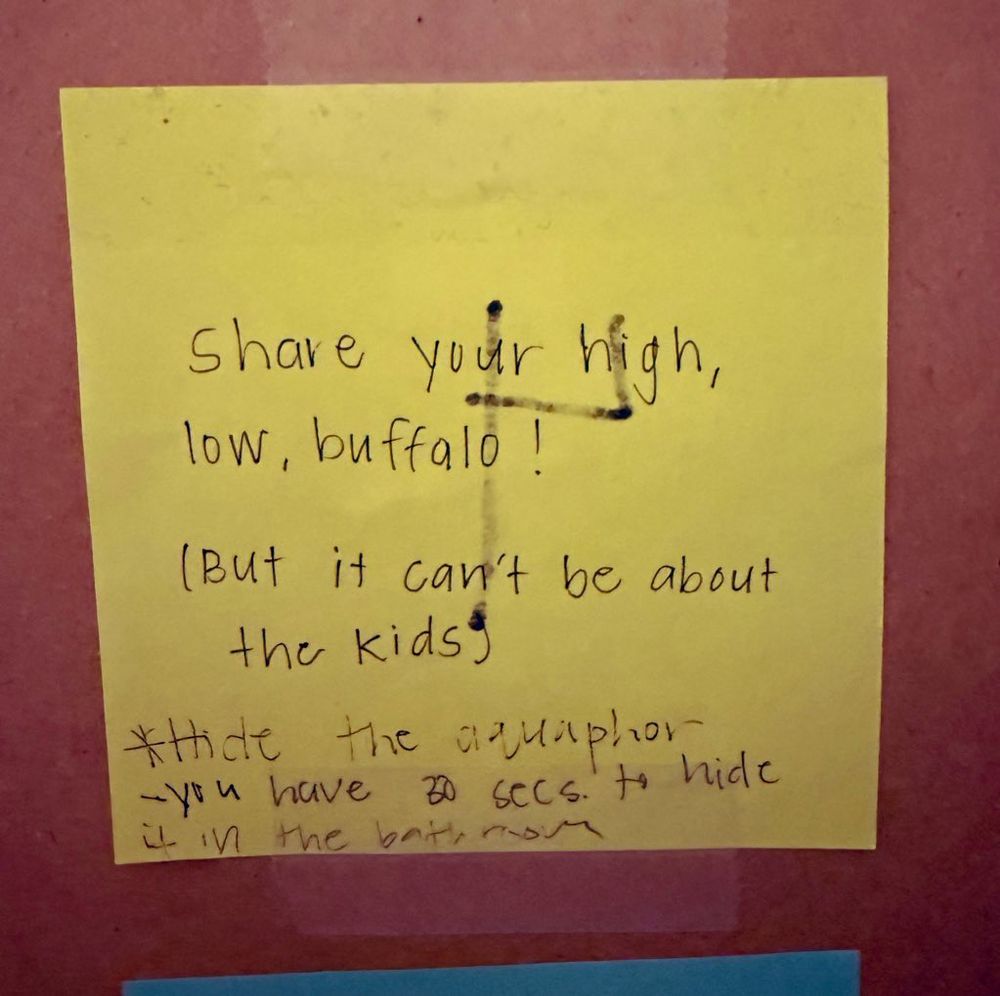 Share your high,
low, buffalo!
(But it can't be about
the kids)
*Hide the aquaphor
-you have 30 secs. to hide
it in the bathroom